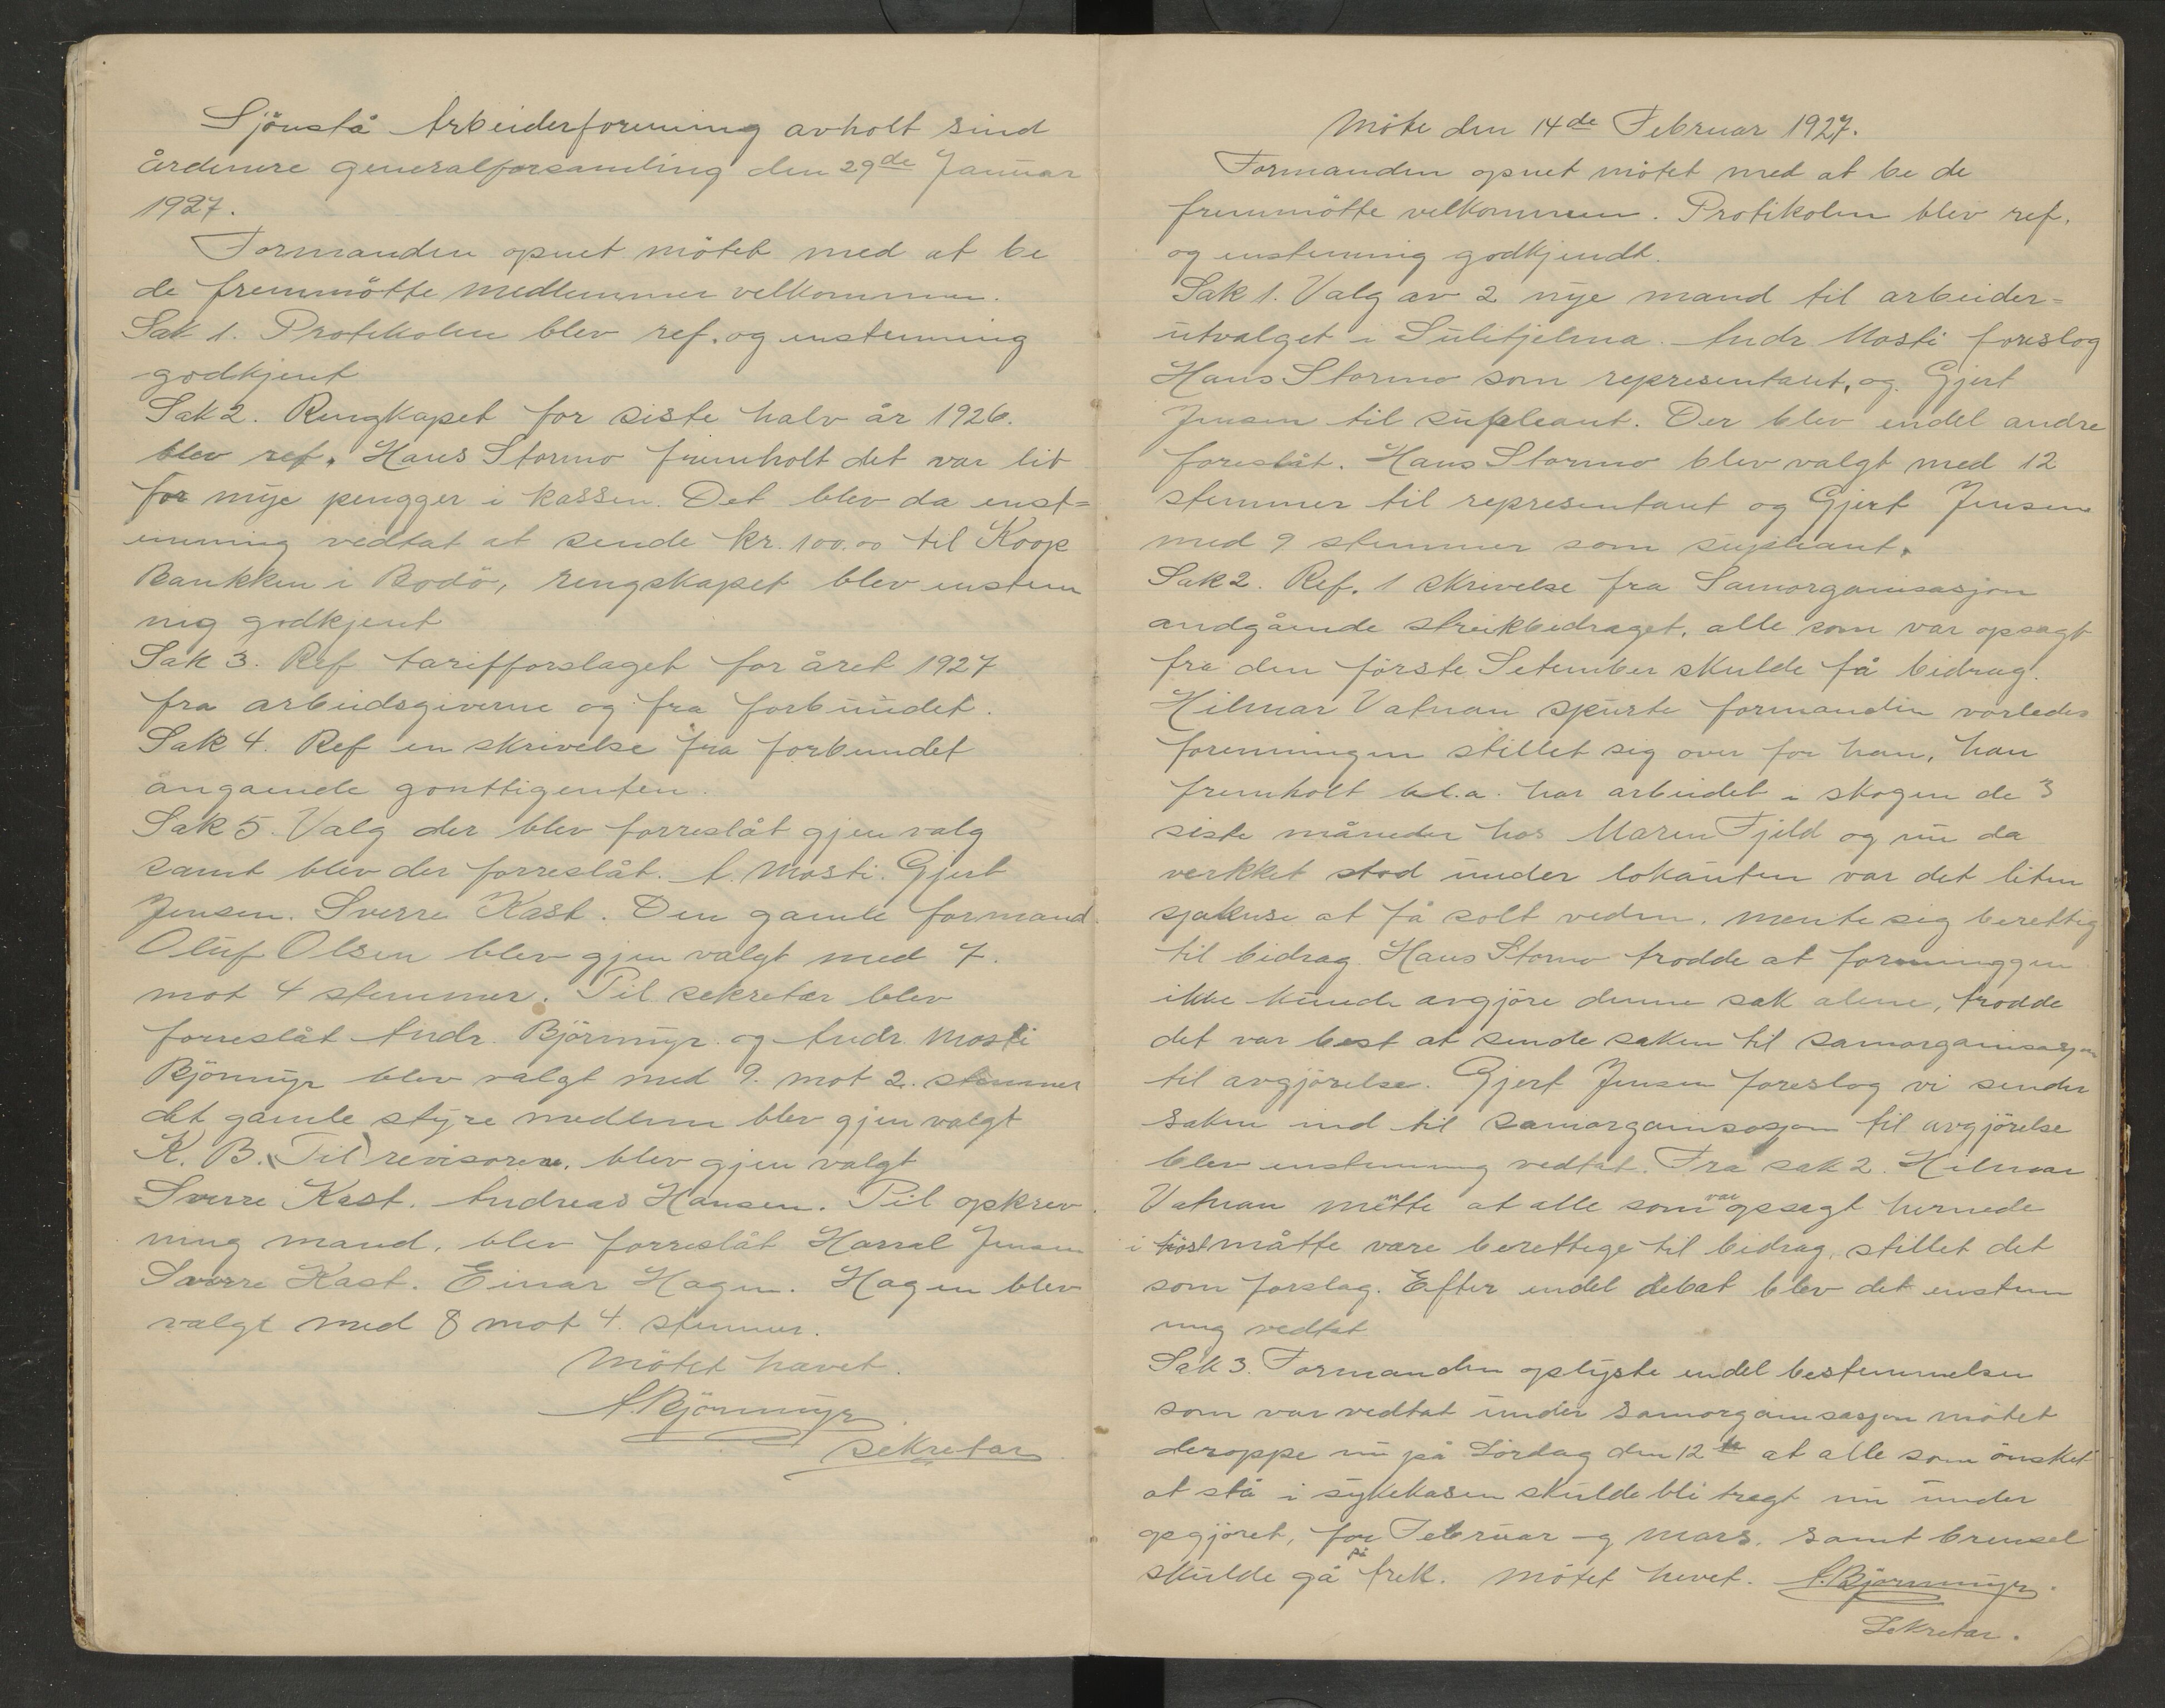 Sjönstå Arbeiderforening avholt sind
årdinere generalforsamling den 29de Januar
1927.
Formanden opnet mötet med at be
de fremmötte medlemmer velkommen.
Sak 1. Protokolen blev ref. og enstemmig
godkjent
Sak 2. Rengkapet for siste halv år 1926.
blev ref. Hans Stormo fremholt det var lit
for mye pengger i kassen. Det blev da enst=
emmig vedtat at sende kr. 100.00 til Koop
Bankken i Bodö, rengskapet blev enstem
nig godkjent
Sak 3. Ref tarifforslaget for året 1927
fra arbeidsgiverne og fra forbundet.
Sak 4. Ref en skrivelse fra forbundet
angaende gonttigenten.
Sak 5. Valg der blev forreslåt gjen valg
samt blev der forreslåt. A. Mosti. Gjert
Jensen. Sverre Kast. Den gamle formand
Oluf Olsen blev gjen valgt med 7.
mot 4 stemmer. Til sekretær blev
forreslåt Andr. Björnmyr og Andr. Mosti
Björnmyr blev valgt med 9. mot 2. stemmer
det gamle styre medlem blev gjen valgt
K. B. Til revisorene. blev gjen valgt
Sverre Kast. Andreas Hansen. Til opkrev
ning mand, blev forreslåt Harral Jensen
Sverre Kast. Einar Hagen. Hagen blev
valgt med 8 mot 4. stemmer.
Mötet havet.
A. Björnmyr
Sekretær
Möte den 14de Februar 1927.
Formanden opnet mötet med at be de
fremmötte velkommen. Protikolen blev ref.
og enstemmig godkjendt.
Sak 1. Valg av 2 nye mand til arbeider=
utvalget i Sulitjelma. Andr. Mosti foreslog
Hans Stormo som representant, og Gjert
Jensen til supleant. Der blev endel andre
foreslåt. Hans Stormo blev valgt med 12
stemmer til representant og Gjert Jensen
med 9 stemmer som supleant.
Sak 2. Ref. 1 skrivelse fra Samorganisasjon
andgående streikbidraget, alle som var opsagt
fra den förste Setember skulde få bidrag.
Hilmar Vatnan spurte formanden vorledes
forenningen stillet sig over for han, han
fremholt bl.a. har arbeidet i skogen de 3
siste måneder hos Maren Fjeld og nu da
verkket stod under lokauten var det liten
sjakuse at få solt veden, mente sig berettig
til bidrag. Hans Stormo trodde at forninggen
ikke kunde avgjöre denne sak alene, trodde
det var best at sende saken til samorganisasjon
til avgjörelse. Gjert Jensen foreslog vi sender
saken ind til samorganisasjon til avgjörelse
blev enstemmig vedtat. Fra sak 2. Hilmar
Vatnan mentte at alle som var opsagt hernede
i höst måtte være berettige til bidrag, stillet det
som forslag. Efter endel debat blev det enstem
mig vedtat
Sak 3. Formanden oplyste endel bestemmelser
som var vedtat under samorganisasjon mötet
deroppe nu på Lördag den 12te at alle som önsket
at stå i sykekasen skulde bli tragt nu under
opgjöret, for Februar og Mars, samt brensel
skulde gå på trek. Mötet hevet. A. Björnmyr.
Sekretær.